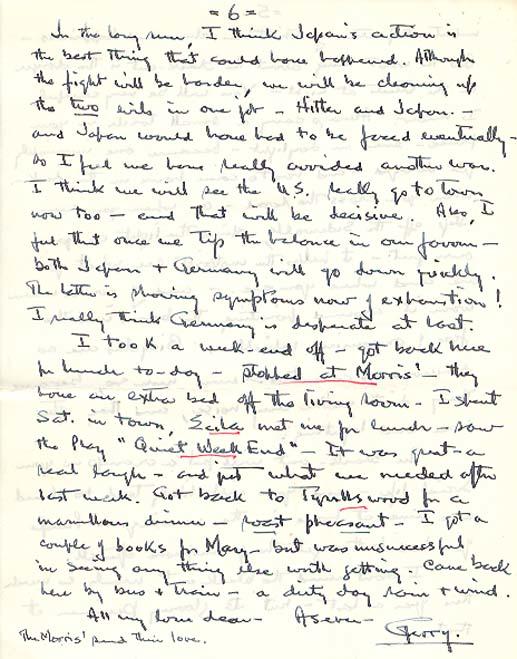 = 6 =
In the long run, I think Japan's action is
the best thing that could have happened. Although
the fight will be harder, we will be cleaning up
the two evils in one job - Hitler and Japan. -
and Japan would have had to be faced eventually -
so I feel we have really avoided another war.
I think we will see the U.S. really go to town
now too - and that will be decisive. Also, I
feel that once we tip the balance in our favour -
both Japan + Germany will go down quickly.
The latter is showing symptoms now of exhaustion!
I really think Germany is desperate at last.
I took a week-end off - got back here
for lunch to-day - stopped at Morris' - they
have an extra bed off the living room - I spent
Sat. in town, met me for lunch - saw
the Play "Quiet Week End" - It was great - a
real laugh - and just what we needed after
last week. Got back to Tyrrellswood for a
marvellous dinner - roast pheasant - I got a
couple of books for Mary - but was unsuccessful
in seeing any thing else worth getting. Came back
here by bus + train - a dirty day rain + wind.
All my love dear - As ever -
Gerry.
The Morris' send their love.